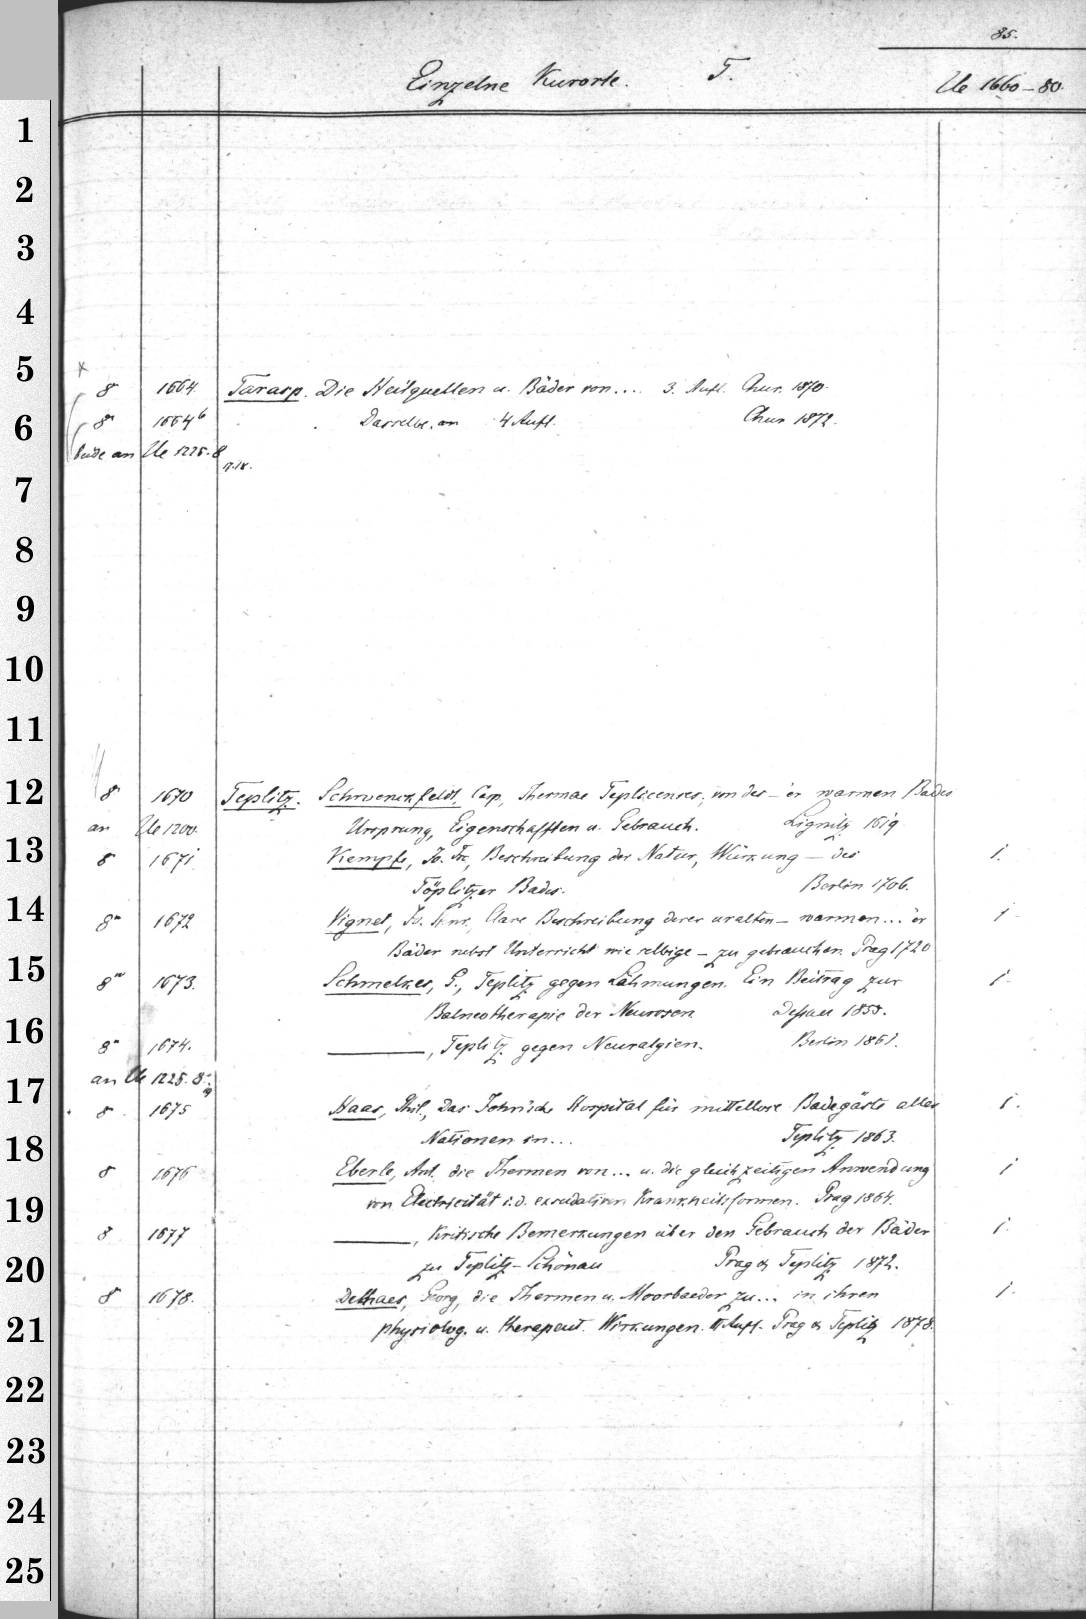 85.
Einzelne Kurorte. T. Ue 1660-80.
8° 1664 Tarasp. Die Heilquellen u. Bäder von... 3. Aufl. Chur. 1870.
8° 1664b Dasselbe. 4 Aufl. Chur 1872.
beide an Ue 1225. 8
8° 1670 Teplitz. Schwenckfeldt, Casp., Thermae Teplicenses, von des - 'er warmen Bades
an Ue 1200. Ursprung, Eigenschafften u. Gebrauch. Lignitz 1619
8° 1671 Kempfe, Beschreibung der Natur, Würkung - des 1.
Töplitzer Bades. Berlin 1706.
8° 1672 Vignet, Clare Beschreibung derer uralten - warmen... 'er 1
Bäder nebst Unterricht wie selbige - zu gebrauchen. Prag 1720
8° 1673. Schmelkes, G., Teplitz gegen Lähmungen. Ein Beitrag zur 1.
Balneotherapie der Neurosen Dessau 1855.
8° 1674. ———, Teplitz gegen Neuralgien. Berlin 1861.
an Ue 1225. 8°
8° 1675 Haas, Phil., Das John'sche Hospital für mittellose Badegäste aller 1.
Nationen in... Teplitz 1863.
8° 1676 Eberle, Ant. die Thermen von... u. die gleichzeitigen Anwendung 1
von Electricität i. d. exsudativen Krankheitsformen. Prag 1864.
8 1677 ———, Kritische Bemerkungen über den Gebrauch der Bäder 1.
zu Teplitz-Schönau Prag & Teplitz 1872.
8° 1678. Delhaes, Georg, die Thermen u. Moorbaeder zu... in ihren 1.
physiolog. u. therapeut. Wirkungen. II Aufl. Prag & Teplitz 1878.